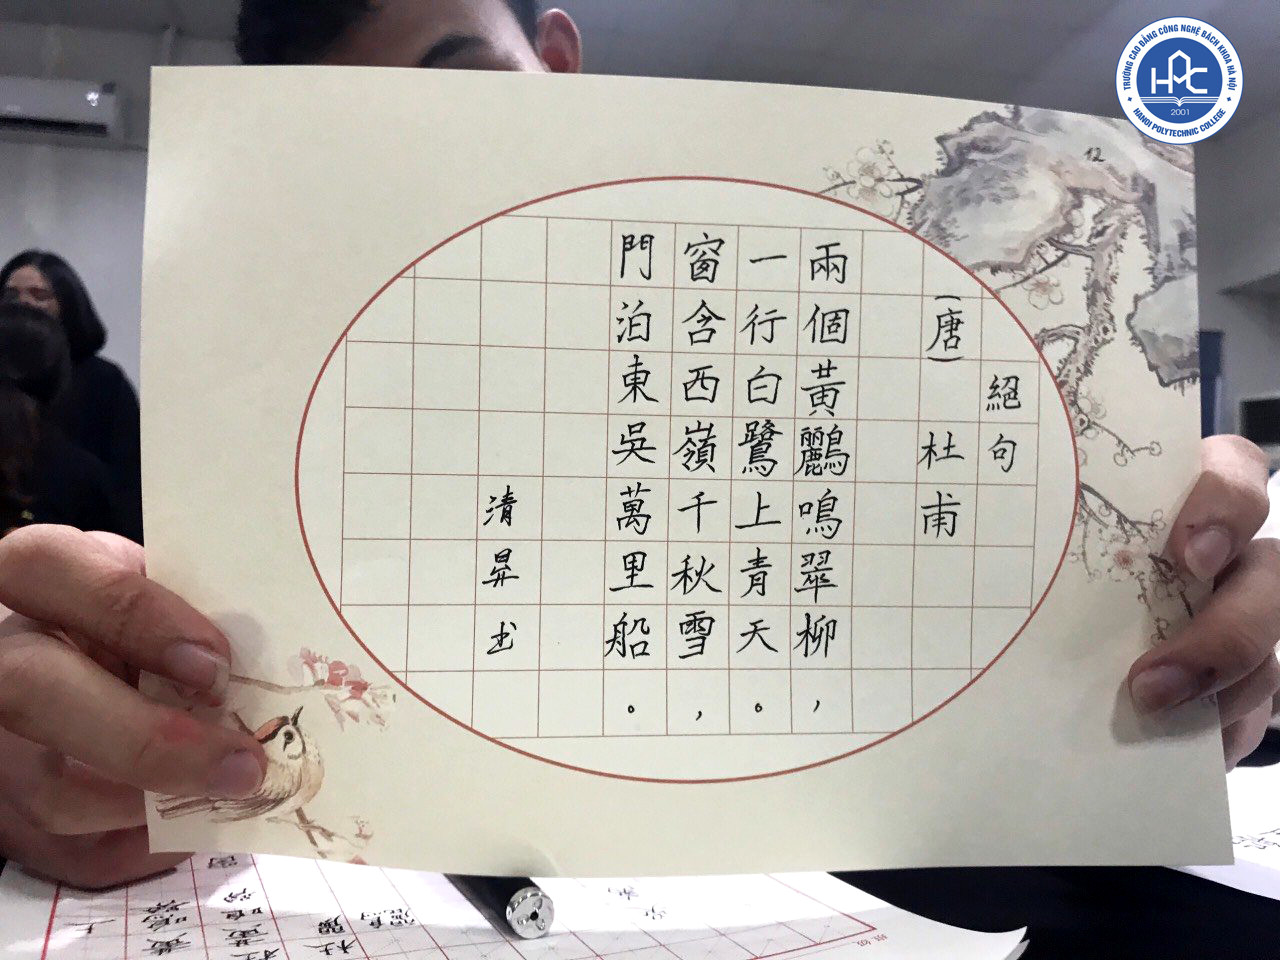 絕句
（唐）杜甫
兩個黃鸝鳴翠柳，
一行白鷺上青天。
窗含西嶺千秋雪，
門泊東吳萬里船。
清昇书
12
TRƯỜNG CAO ĐẲNG CÔNG NGHỆ BÁCH KHOA HÀ NỘI
HPC
2001
HANOI POLYTECHNIC COLLEGE